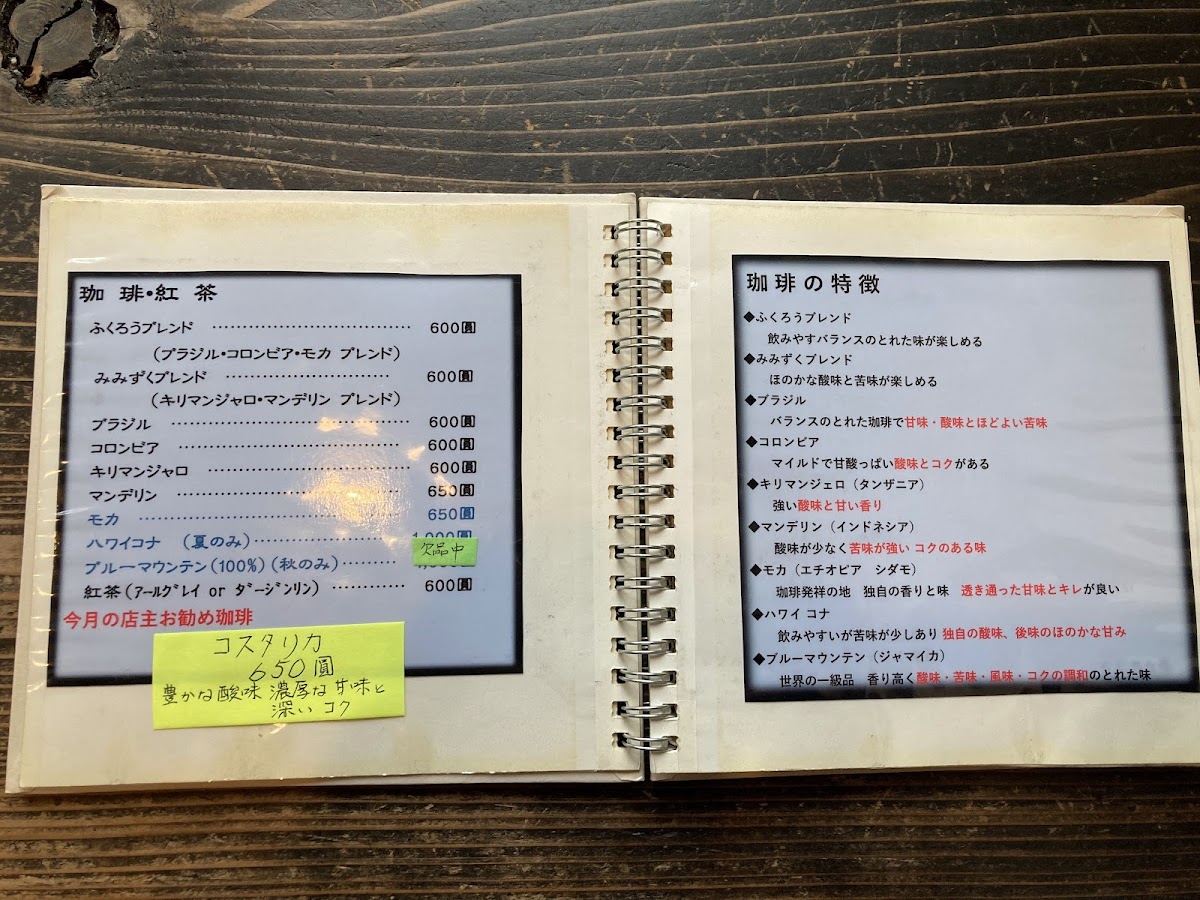 珈琲・紅茶
ふくろうブレンド ………………………… 600圓
(ブラジル・コロンビア・モカ ブレンド)
みみずくブレンド ……………………… 600圓
(キリマンジャロ・マンデリン ブレンド)
ブラジル ………………………… 600圓
コロンビア ………………………… 600圓
キリマンジャロ ……………………… 600圓
マンデリン ………………………… 650圓
モカ ……………………………… 650圓
ハワイコナ (夏のみ)………………………
欠品中
ブルーマウンテン(100%)(秋のみ)…………
紅茶(アールグレイ or ダージンリン) …………… 600圓
今月の店主お勧め珈琲
コスタリカ
650圓
豊かな酸味 濃厚な甘味と
深い コク
珈琲の特徴
◆ふくろうブレンド
飲みやすバランスのとれた味が楽しめる
◆みみずくブレンド
ほのかな酸味と苦味が楽しめる
◆ブラジル
バランスのとれた珈琲で甘味・酸味とほどよい苦味
◆コロンビア
マイルドで甘酸っぱい酸味とコクがある
◆キリマンジェロ(タンザニア)
強い酸味と甘い香り
◆マンデリン(インドネシア)
酸味が少なく苦味が強い コクのある味
◆モカ(エチオピア シダモ)
珈琲発祥の地 独自の香りと味 透き通った甘味とキレが良い
◆ハワイ コナ
飲みやすいが苦味が少しあり 独自の酸味、後味のほのかな甘み
◆ブルーマウンテン(ジャマイカ)
世界の一級品 香り高く酸味・苦味・風味・コクの調和のとれた味